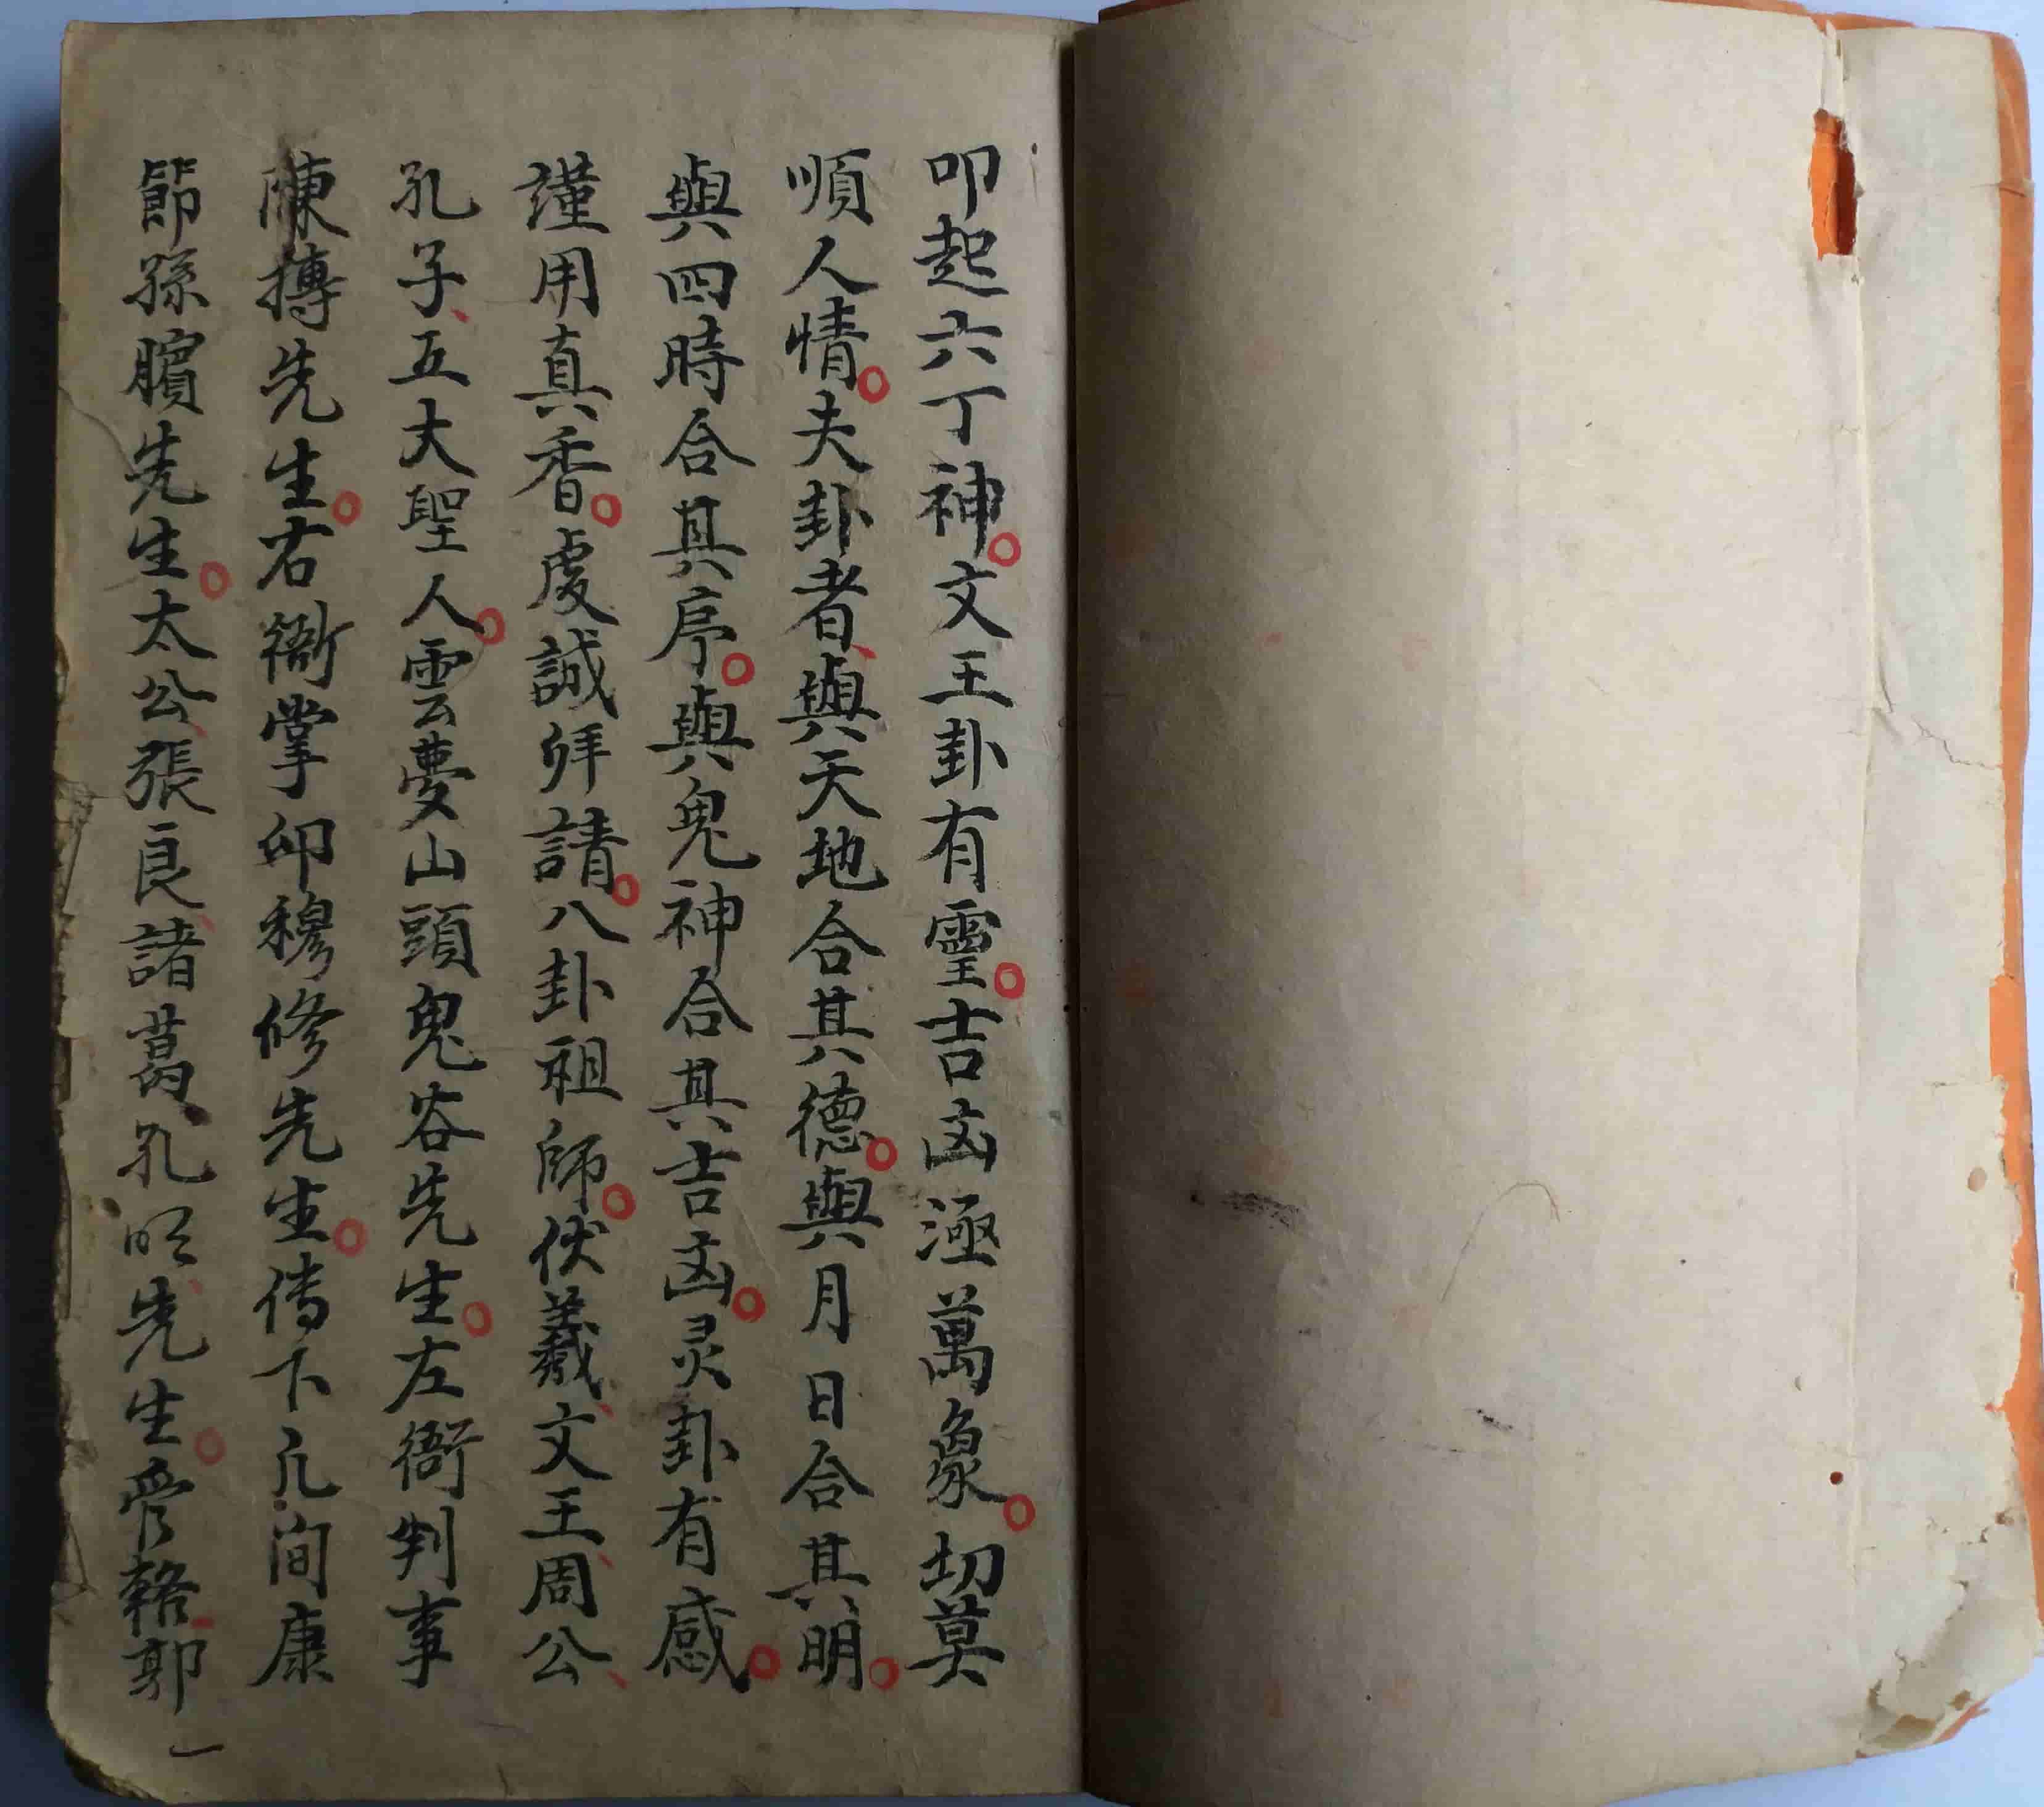 叩起六丁神。文王卦有𩄇。吉凶滛萬象。切莫
順人情。夫卦者、與天地合其德。與月日合其明。
與四時合其序。與鬼神合其吉凶。灵卦有感。
謹用真香。虔誠拜請。八卦祖師。伏羲、文王、周公、
孔子、五大聖人。雲夢山頭鬼谷先生。左衙判事
陳摶先生。右衙掌印穆修先生。傳下凡間康
節孫臏先生。太公、張良、諸葛孔明先生。管輅、郭
一